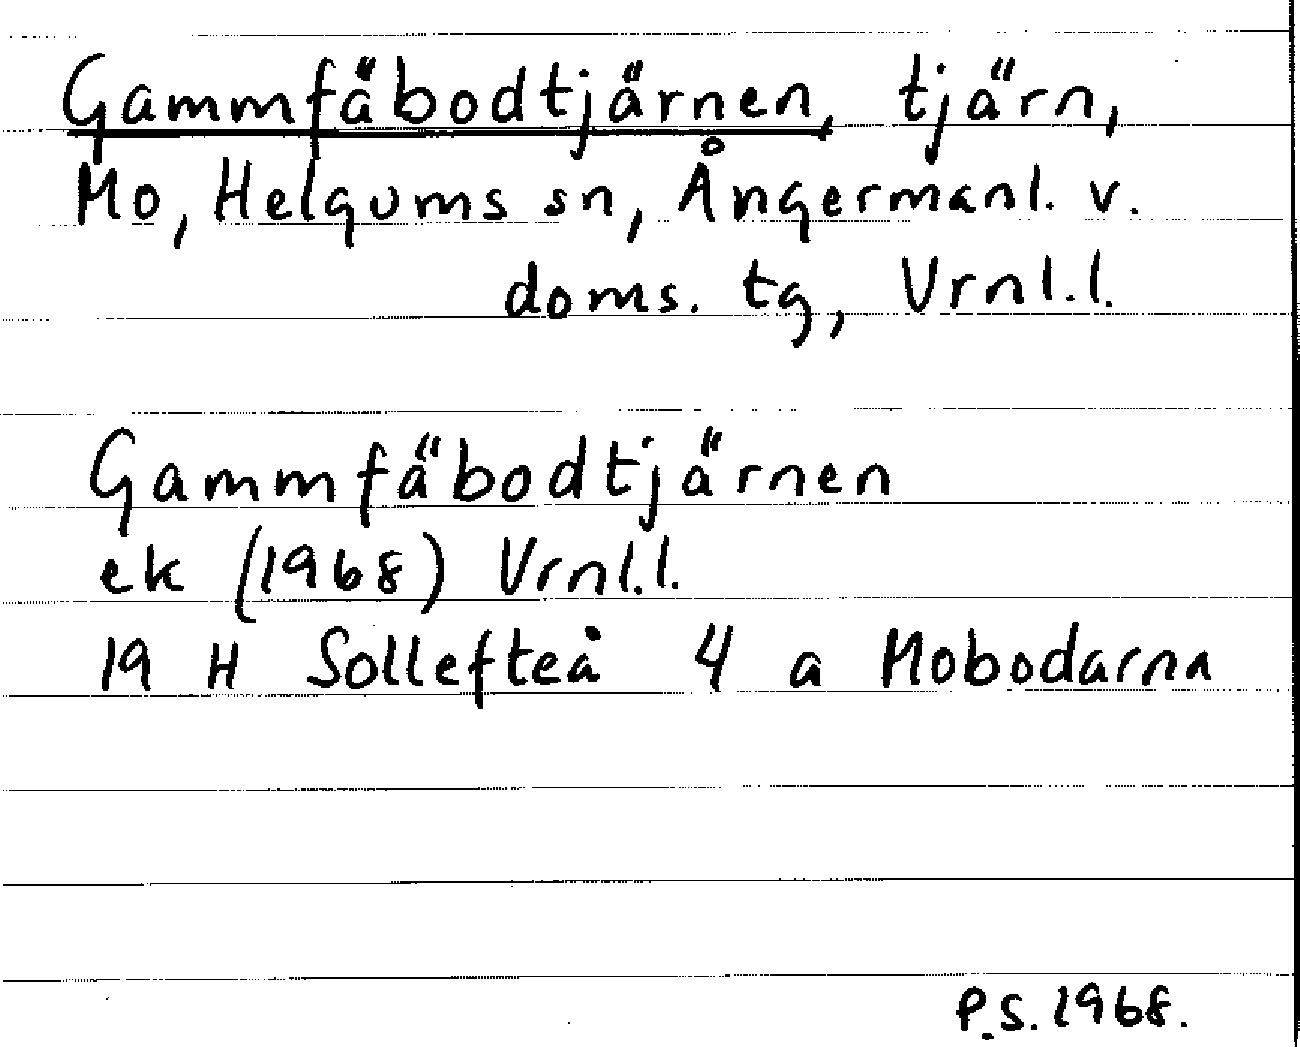 Gammfäbodtjärnen, tjärn,
Mo, Helgums sn, Ångermanl. v.
doms. tg, Vrnl.l.
Gammfäbodtjärnen
ek (1968) Vrnl.l.
19 H Sollefteå 4 a Mobodarna
P.S. 1968.